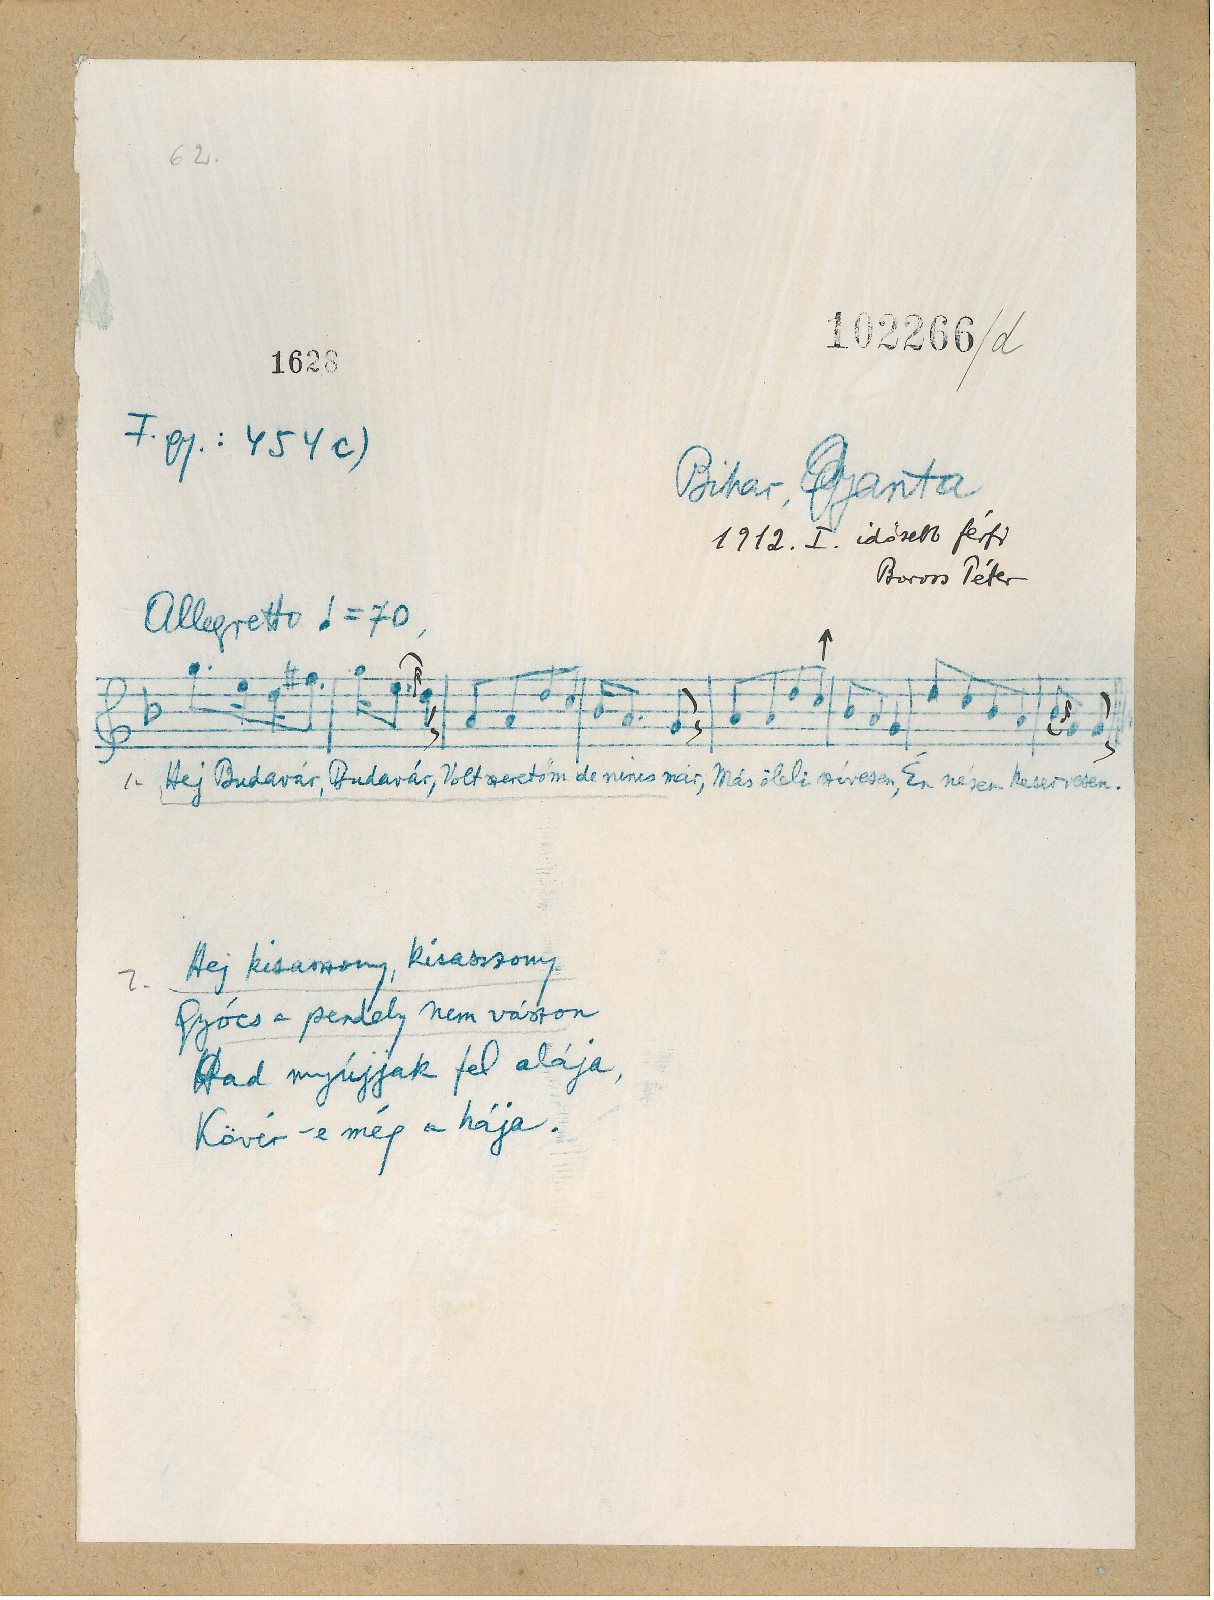 62.
102266/d
1628
F. gy.: 454c)
Bihar, Gyanta
1912. I. idősebb férfi
Boross Péter
Allegretto ♩=70
1. Hej Budavár, Budavár, Volt szeretőm de nincs már, Más öleli szívesen, Én nézem keservesen.
2. Hej kisasszony, kisasszony
Gyócs a pendely nem vászon
Had nyújjak fel alája,
Kövér-e még a hája.